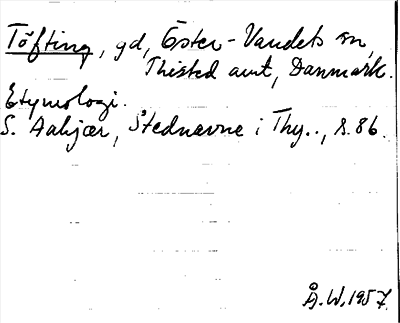 Töfting, gd, Öster-Vandets sn,
Thisted amt, Danmark.
Etymologi.
S. Aakjær, Stednavne i Thy.., s. 86.
Å.W.1957.